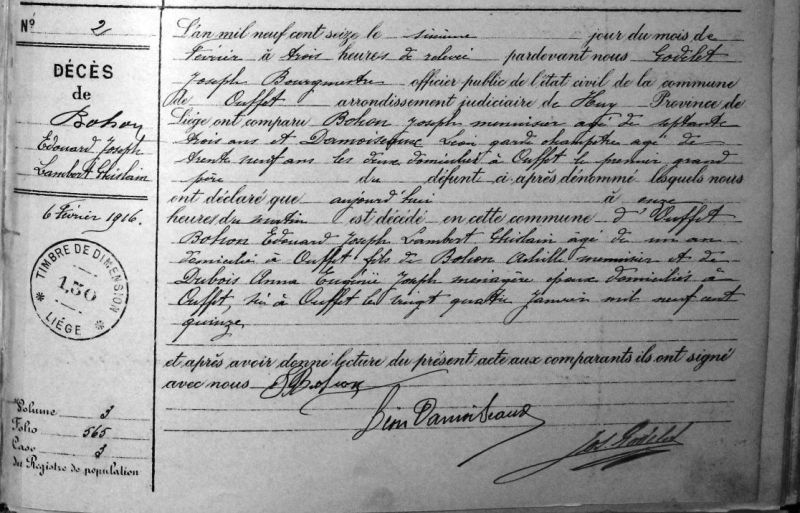 Nº 2
DÉCÈS
de
Bohon
Edouard Joseph
Lambert Ghislain
6 Février 1916.
TIMBRE DE DIMENSION
1.50
LIÉGE
Volume 3
Folio 565
Case 3
du Registre de population
L'an mil neuf cent seize le sixième jour du mois de
Février à trois heures de relevée pardevant nous Godelet
Joseph Bourgmestre officier public de l'état civil de la commune
de Ouffet arrondissement judiciaire de Huy Province de
Liége ont comparu Bohon Joseph menuisier agé de septante
trois ans et Damoiseaux Léon garde champêtre agé de
trente neuf ans les deux domiciliés à Ouffet le premier grand
père du défunt ci après dénommé lesquels nous
ont déclaré que aujourd'hui à onze
heures du matin est décédé en cette commune d'Ouffet
Bohon Edouard Joseph Lambert Ghislain âgé de un an
domicilié à Ouffet fils de Bohon Achille menuisier et de
Dubois Anna Eugénie Joseph menagère époux domiciliés à
Ouffet, né à Ouffet le vingt quatre Janvier mil neuf cent
quinze,
et après avoir donné lecture du présent acte aux comparants ils ont signé
avec nous Bohon
Léon Damoiseaux
Jos Godelet